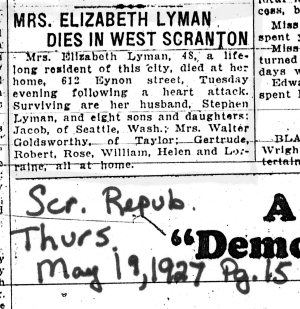 MRS. ELIZABETH LYMAN
DIES IN WEST SCRANTON
Mrs. Elizabeth Lyman, 48, a life-
long resident of this city, died at her
home, 612 Eynon street, Tuesday
evening following a heart attack.
Surviving are her husband, Stephen
Lyman, and eight sons and daughters:
Jacob, of Seattle, Wash.; Mrs. Walter
Goldsworthy, of Taylor; Gertrude,
Robert, Rose, William, Helen and Lor-
raine, all at home.
Scr. Repub.
Thurs.
May 19, 1927 Pg. 15
cess, b
Miss
spent y
Miss
turned
days w
Edwa
spent
BLA
Wrigh
tertain
A
"Demo